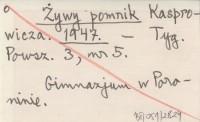 Żywy pomnik Kaspro-
wicza. 1947. — Tyg.
Powsz. 3, nr 5.
Gimnazjum w Poro-
ninie.